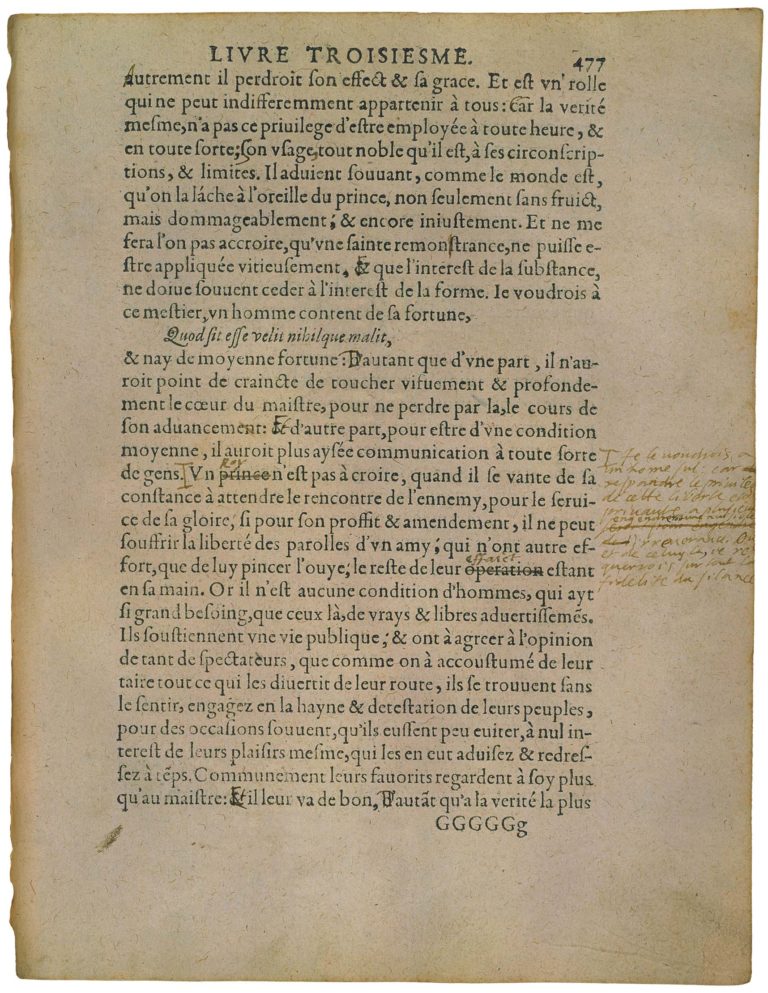 LIVRE TROISIESME. 477
Autrement il perdroit ſon effect & ſa grace. Et eſt vn' rolle
qui ne peut indifferemment appartenir à tous: Car la verité
meſme, n'a pas ce priuilege d'eſtre employée à toute heure, &
en toute ſorte; ſon vſage, tout noble qu'il eſt, à ſes circonſcrip-
tions, & limites. Il aduient ſouuant, comme le monde eſt,
qu'on la láche à l'oreille du prince, non ſeulement ſans fruict,
mais dommageablement; & encore iniuſtement. Et ne me
fera l'on pas accroire, qu'vne ſainte remonſtrance, ne puiſſe e-
ſtre appliquée vitieuſement, & que l'intereſt de la ſubſtance,
ne doiue ſouuent ceder à l'intereſt de la forme. Ie voudrois à
ce meſtier, vn homme content de ſa fortune,
Quod ſit eſſe velit nihilque malit,
& nay de moyenne fortune: D'autant que d'vne part, il n'au-
roit point de craincte de toucher vifuement & profonde-
ment le cœur du maiſtre, pour ne perdre par la, le cours de
ſon aduancement: Et d'autre part, pour eſtre d'vne condition
moyenne, il auroit plus ayſée communication à toute ſorte
Roy
de gens. Vn prince n'eſt pas à croire, quand il ſe vante de ſa
conſtance à attendre le rencontre de l'ennemy, pour le ſerui-
ce de ſa gloire; ſi pour ſon proffit & amendement, il ne peut
ſouffrir la liberté des parolles d'vn amy; qui n'ont autre ef-
effaict
fort, que de luy pincer l'ouye; le reſte de leur operation eſtant
en ſa main. Or il n'eſt aucune condition d'hommes, qui ayt
ſi grand beſoing, que ceux là, de vrays & libres aduertiſſemẽs.
Ils ſouſtiennent vne vie publique; & ont à agreer à l'opinion
de tant de ſpectateurs, que comme on à accouſtumé de leur
taire tout ce qui les diuertit de leur route, ils ſe trouuent ſans
le ſentir, engagez en la hayne & deteſtation de leurs peuples,
pour des occaſions ſouuent, qu'ils euſſent peu euiter, à nul in-
tereſt de leurs plaiſirs meſme, qui les en eut aduiſez & redreſ-
ſez à tẽps. Communement leurs fauorits regardent à ſoy plus
qu'au maiſtre: Et il leur va de bon, D'autãt qu'a la verité la plus
GGGGGg
Ie le voudrois a
un home sul: car
respandre le
de cette liberte
privaute a
irreverance.
et de celuy la, ie re
querrois sur tout la
fidelite du silance